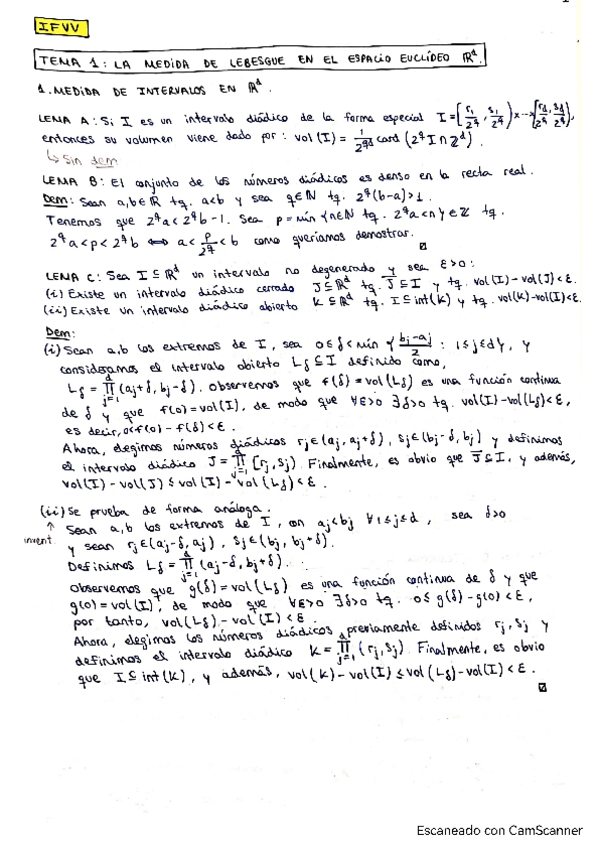 IFVV
TEMA 1: LA MEDIDA DE LEBESGUE EN EL ESPACIO EUCLÍDEO ℝᵈ.
1. MEDIDA DE INTERVALOS EN ℝᵈ.
LEMA A: Si I es un intervalo diádico de la forma especial I=[r₁/2^q, s₁/2^q)×···×[r_d/2^q, s_d/2^q),
entonces su volumen viene dado por: vol(I) = 1/2^{qd} card (2^q I ∩ ℤᵈ)
↳ Sin dem
LEMA B: El conjunto de los números diádicos es denso en la recta real.
Dem: Sean a,b∈ℝ tq. a<b y sea q∈ℕ tq. 2^q(b-a)>1.
Tenemos que 2^q a < 2^q b - 1. Sea p = mín {n∈ℕ tq. 2^q a < n} ∈ ℤ tq.
2^q a < p < 2^q b ⟺ a < p/2^q < b como queríamos demostrar.
LEMA C: Sea I ⊆ ℝᵈ un intervalo no degenerado y sea ε>0:
(i) Existe un intervalo diádico cerrado J ⊆ ℝᵈ tq. J̅ ⊆ I y tq. vol(I) - vol(J) < ε.
(ii) Existe un intervalo diádico abierto K ⊆ ℝᵈ tq. I ⊆ int(K) y tq. vol(K) - vol(I) < ε.
Dem:
(i) Sean a,b los extremos de I, sea 0≤δ<mín {(bj-aj)/2 : 1≤j≤d}, y
consideramos el intervalo abierto Lδ ⊆ I definido como,
Lδ = ∏_{j=1}^d (aj+δ, bj-δ). Observemos que f(δ) = vol(Lδ) es una función continua
de δ y que f(0) = vol(I), de modo que ∀ε>0 ∃δ>0 tq. vol(I) - vol(Lδ) < ε,
es decir, 0≤f(0) - f(δ) < ε.
Ahora, elegimos números diádicos rj∈(aj, aj+δ), sj∈(bj-δ, bj) y definimos
el intervalo diádico J = ∏_{j=1}^d [rj, sj). Finalmente, es obvio que J̅ ⊆ I, y además,
vol(I) - vol(J) ≤ vol(I) - vol(Lδ) < ε.
(ii) Se prueba de forma análoga.
↑
invent.
Sean a,b los extremos de I, con aj<bj ∀1≤j≤d, sea δ>0
y sean rj∈(aj-δ, aj), sj∈(bj, bj+δ).
Definimos Lδ = ∏_{j=1}^d (aj-δ, bj+δ).
Observemos que g(δ) = vol(Lδ) es una función continua de δ y que
g(0) = vol(I), de modo que ∀ε>0 ∃δ>0 tq. 0≤ g(δ) - g(0) < ε,
por tanto, vol(Lδ) - vol(I) < ε.
Ahora, elegimos los números diádicos previamente definidos rj, sj y
definimos el intervalo diádico K = ∏_{j=1}^d (rj, sj). Finalmente, es obvio
que I ⊆ int(K), y además, vol(K) - vol(I) ≤ vol(Lδ) - vol(I) < ε.
Escaneado con CamScanner